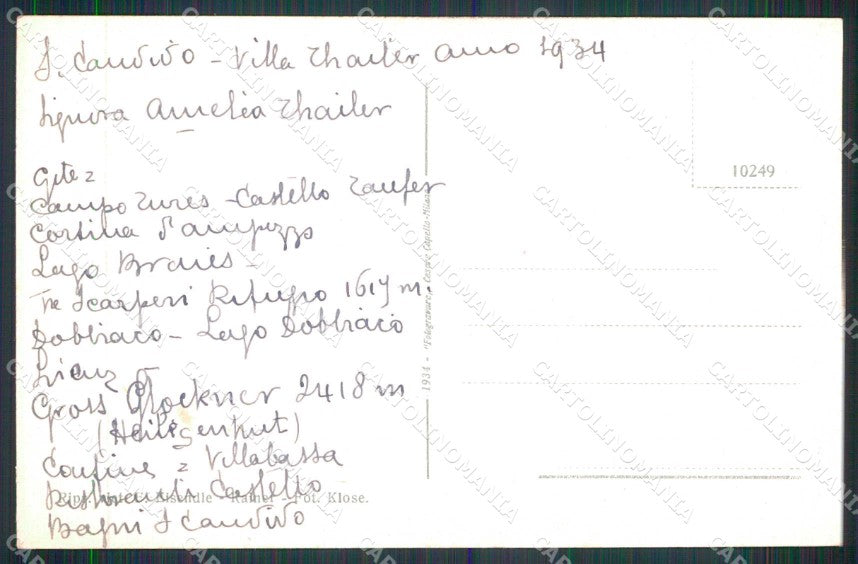 S. Candido - Villa Thailer anno 1934
Signora Amelia Thailer
Gite =
Campo Tures - Castello Taufer
Cortina d'ampezzo
Lago Braies -
Tre Scarperi Rifugio 1617 m.
Dobbiaco - Lago Dobbiaco
Lienz
Gross Glockner 2418 m
(Heiligenhut)
Confine = Villabassa
Castello
Bagni S Candido
Ripr. Eisendle - Rainer - Fot. Klose.
1934 - "Fotogravure" Cesare Capello - Milano
10249
CARTOLINOMANIA